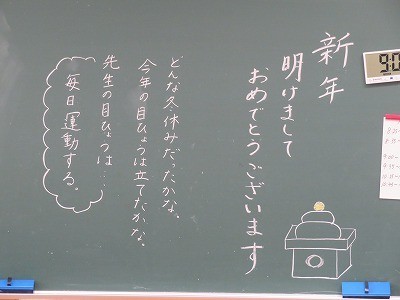 新年
明けまして
おめでとうございます
どんな冬休みだったかな。
今年の目ひょうは立てたかな。
先生の目ひょうは……
毎日運動する。